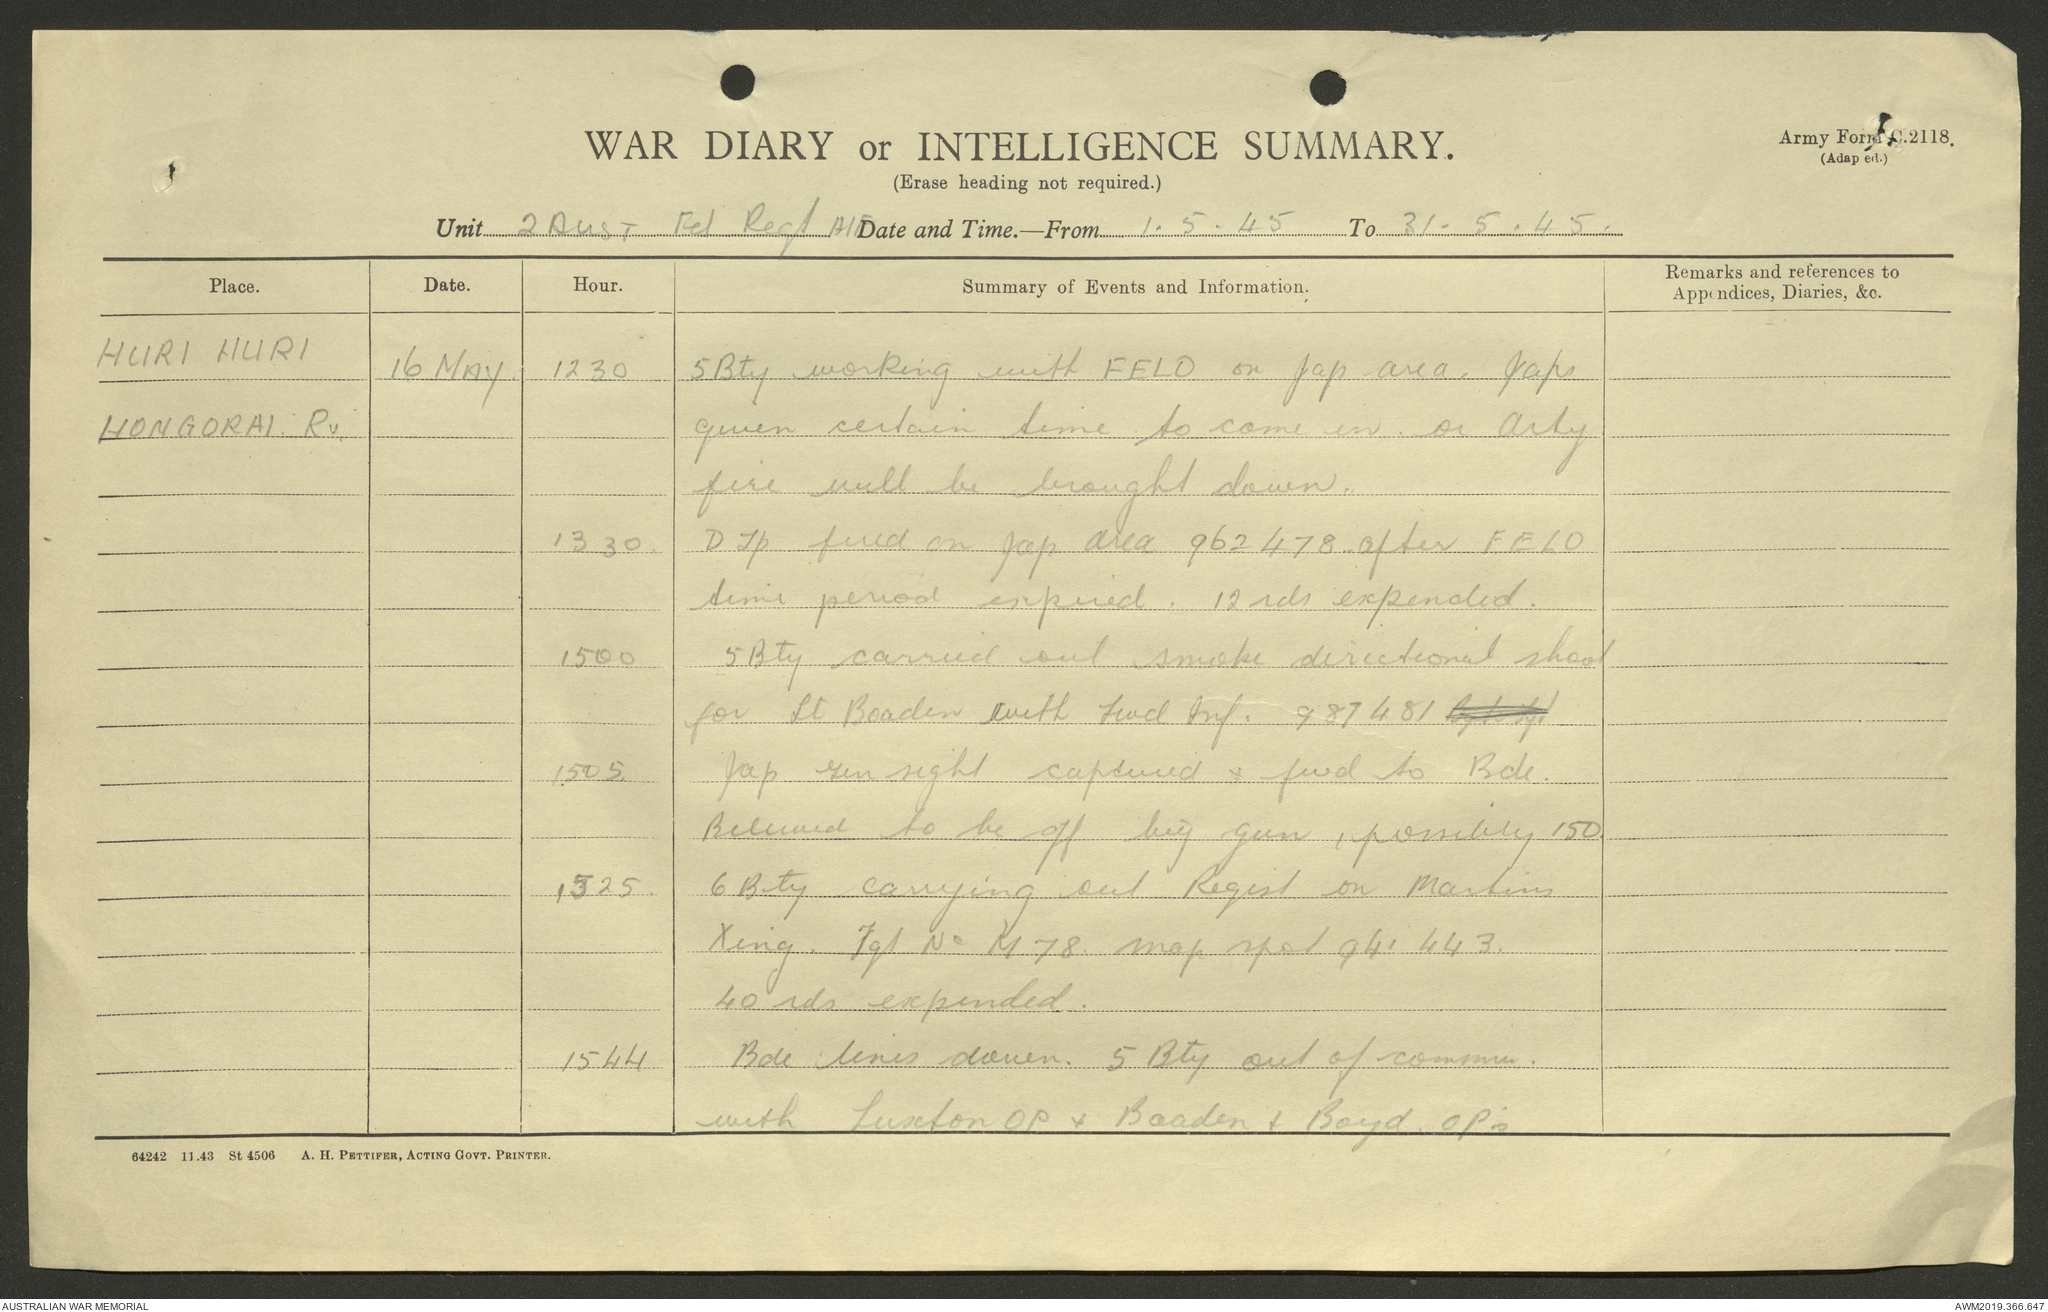 WAR DIARY or INTELLIGENCE SUMMARY.
Army Form C.2118.
(Erase heading not required.)
(Adap ed.)
Unit 2 Aust Fd Regt AIF Date and Time.—From 1.5.45 To 31.5.45.
Place. Date. Hour. Summary of Events and Information. Remarks and references to Appendices, Diaries, &c.
HURI HURI 16 MAY. 1230 5 Bty working with FELO on Jap area. Japs
HONGORAI Rv. given certain time to come in. or Arty
fire will be brought down.
1330. D Tp fired on Jap area 962478 after FELO
time period expired. 12 rds expended.
1500 5 Bty carried out smoke directional shoot
for Lt Boaden with Fwd Inf. 987481
1505 Jap gun sight captured & fwd to Bde.
Believed to be off big gun, possibly 150.
1525. 6 Bty carrying out Regist on Martins
Xing. Tgt No M78. map spot 941443.
40 rds expended.
1544 Bde lines down. 5 Bty out of commn.
with Luxton OP & Boaden & Boyd OP's
64242 11.43 St 4506 A. H. PETTIFER, ACTING GOVT. PRINTER.
AUSTRALIAN WAR MEMORIAL
AWM2019.366.647